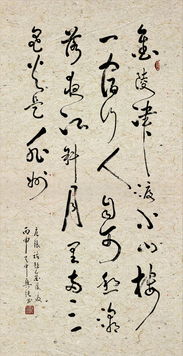 金陵津渡小山樓
一宿行人自可愁潮
落夜江斜月里兩三
星火是瓜州
張祜題金陵渡
丙申